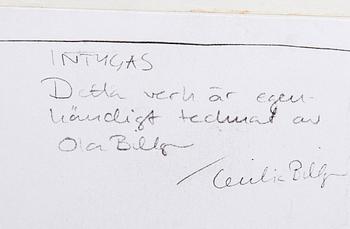 INTYGAS
Detta verk är egen-
händigt tecknat av
Ola Billgren
/Cecilia Billgren